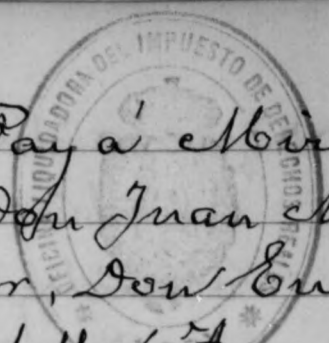 OFICINA LIQUIDADORA DEL IMPUESTO DE DERECHOS REALES
Pay á Mir
Don Juan M
r, Don En